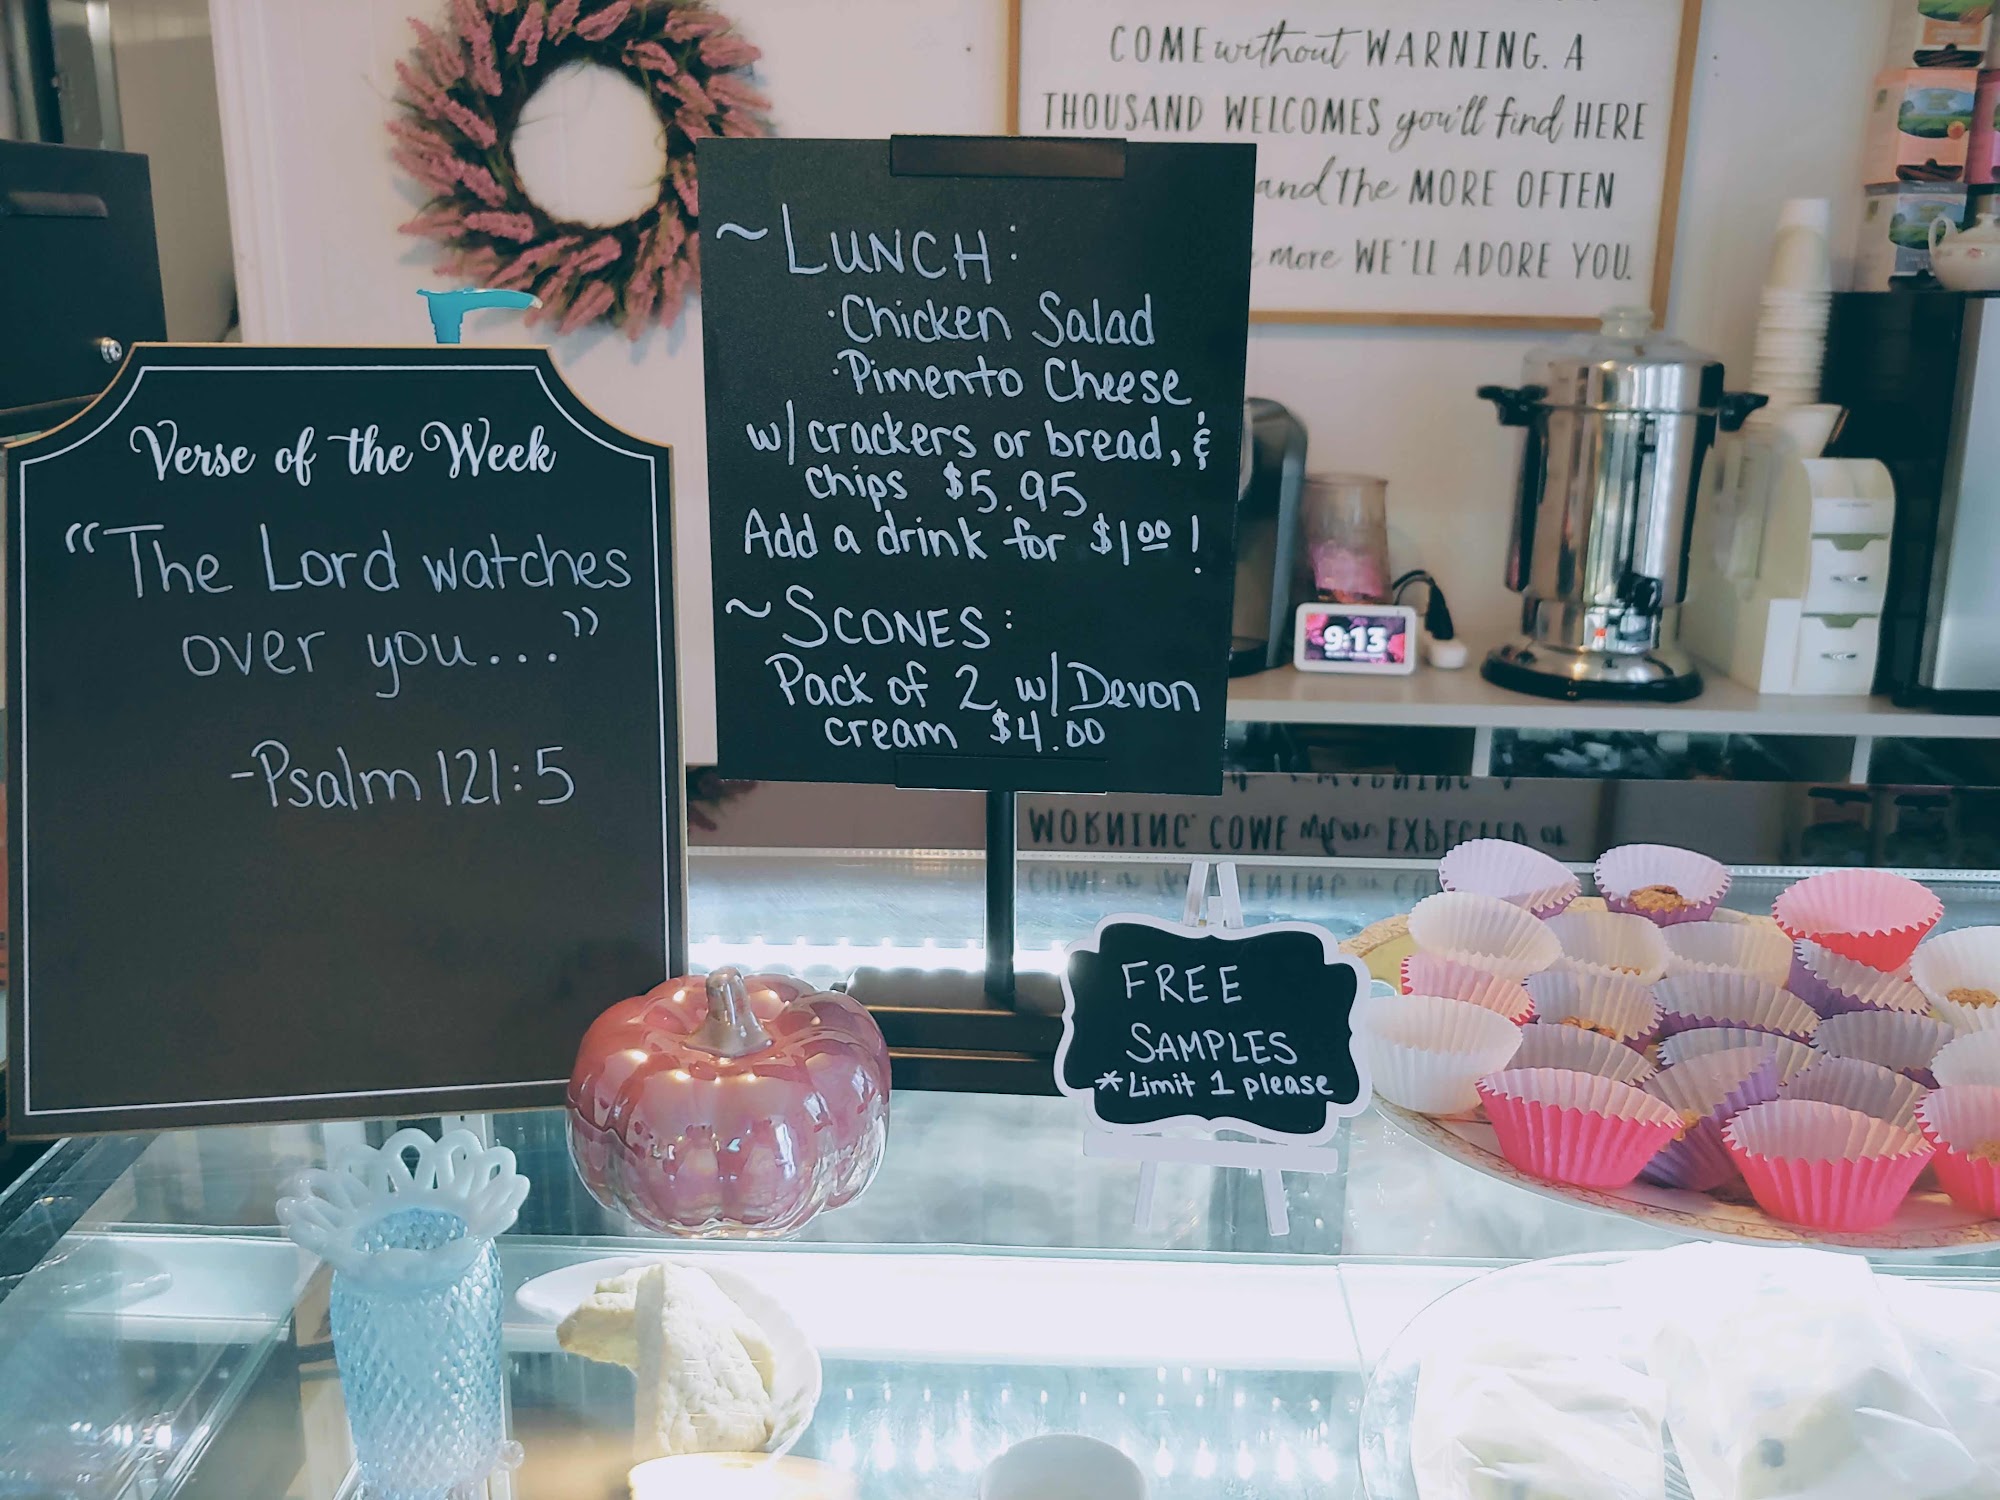 COME without WARNING. A
THOUSAND WELCOMES you'll find HERE
and The MORE OFTEN
more WE'LL ADORE YOU.
~LUNCH:
·Chicken Salad
·Pimento Cheese
w/ crackers or bread, &
chips $5.95
Add a drink for $1.00!
~SCONES:
Pack of 2 w/ Devon
cream $4.00
Verse of the Week
“The Lord watches
over you...”
-Psalm 121:5
9:13
FREE
SAMPLES
*Limit 1 please